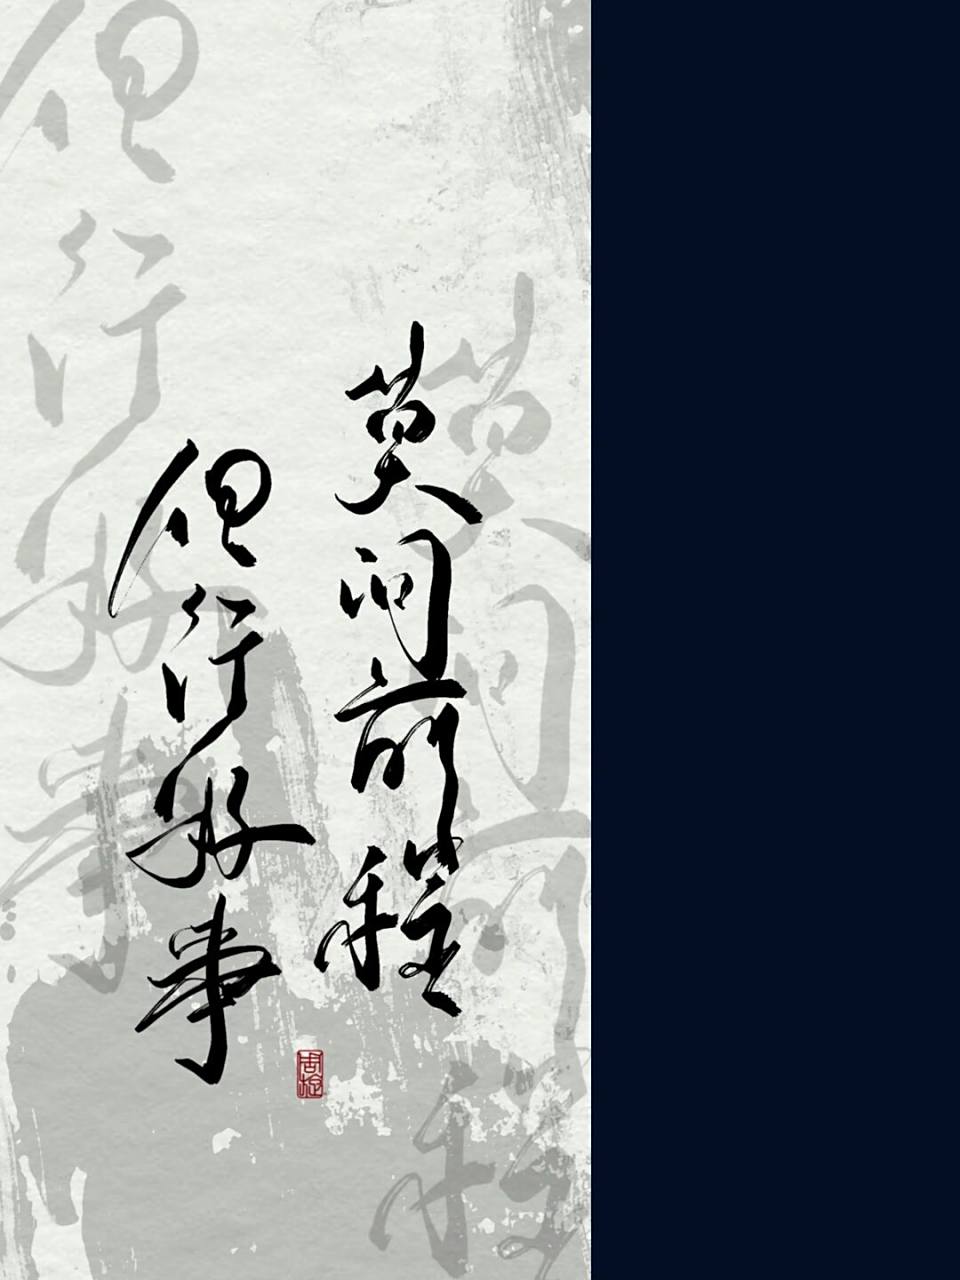 莫问前程
但行好事